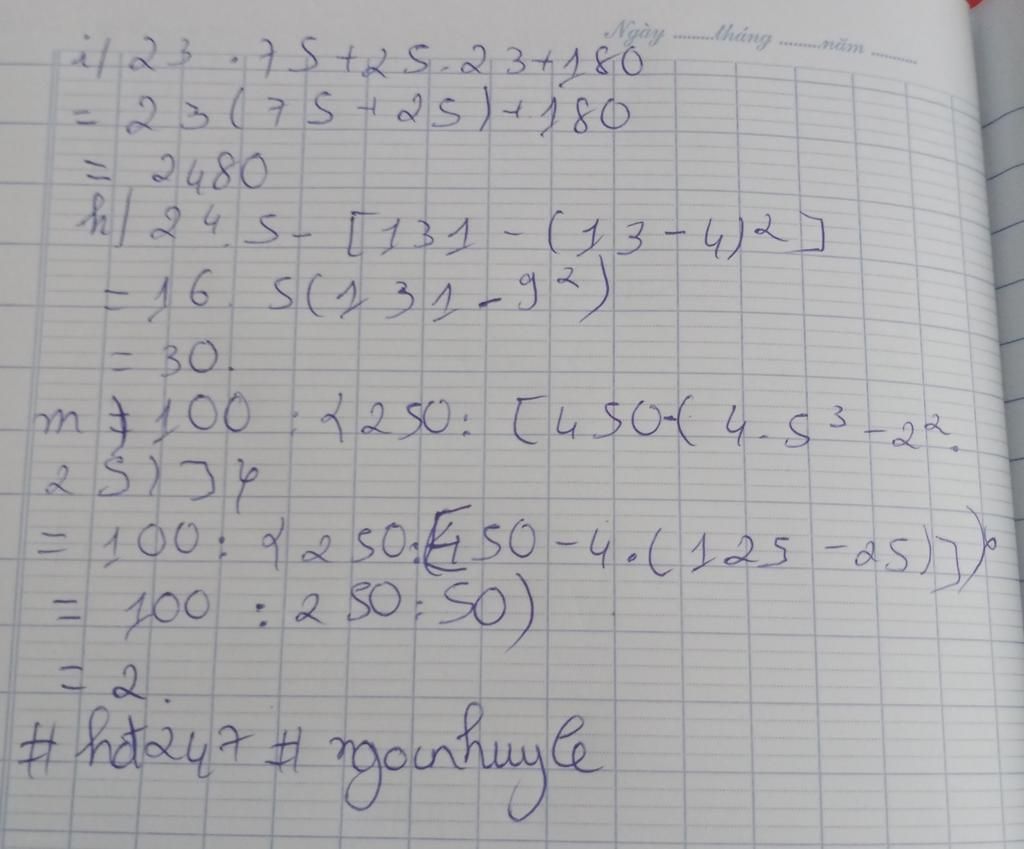 Ngày ........tháng ........năm ........
i) 23 . 75 + 25 . 23 + 180
= 23 ( 75 + 25 ) + 180
= 2480
h) 2⁴ . 5 - [ 131 - ( 13 - 4 )² ]
= 16 . 5 ( 131 - 9² )
= 30.
m) 100 : { 250 : [ 450 - ( 4 . 5³ - 2² .
25 ) ] }
= 100 : { 250 : [ 450 - 4 . ( 125 - 25 ) ] }
= 100 : 250 : 50 )
= 2 .
# hđ247 # ngocnhuyle